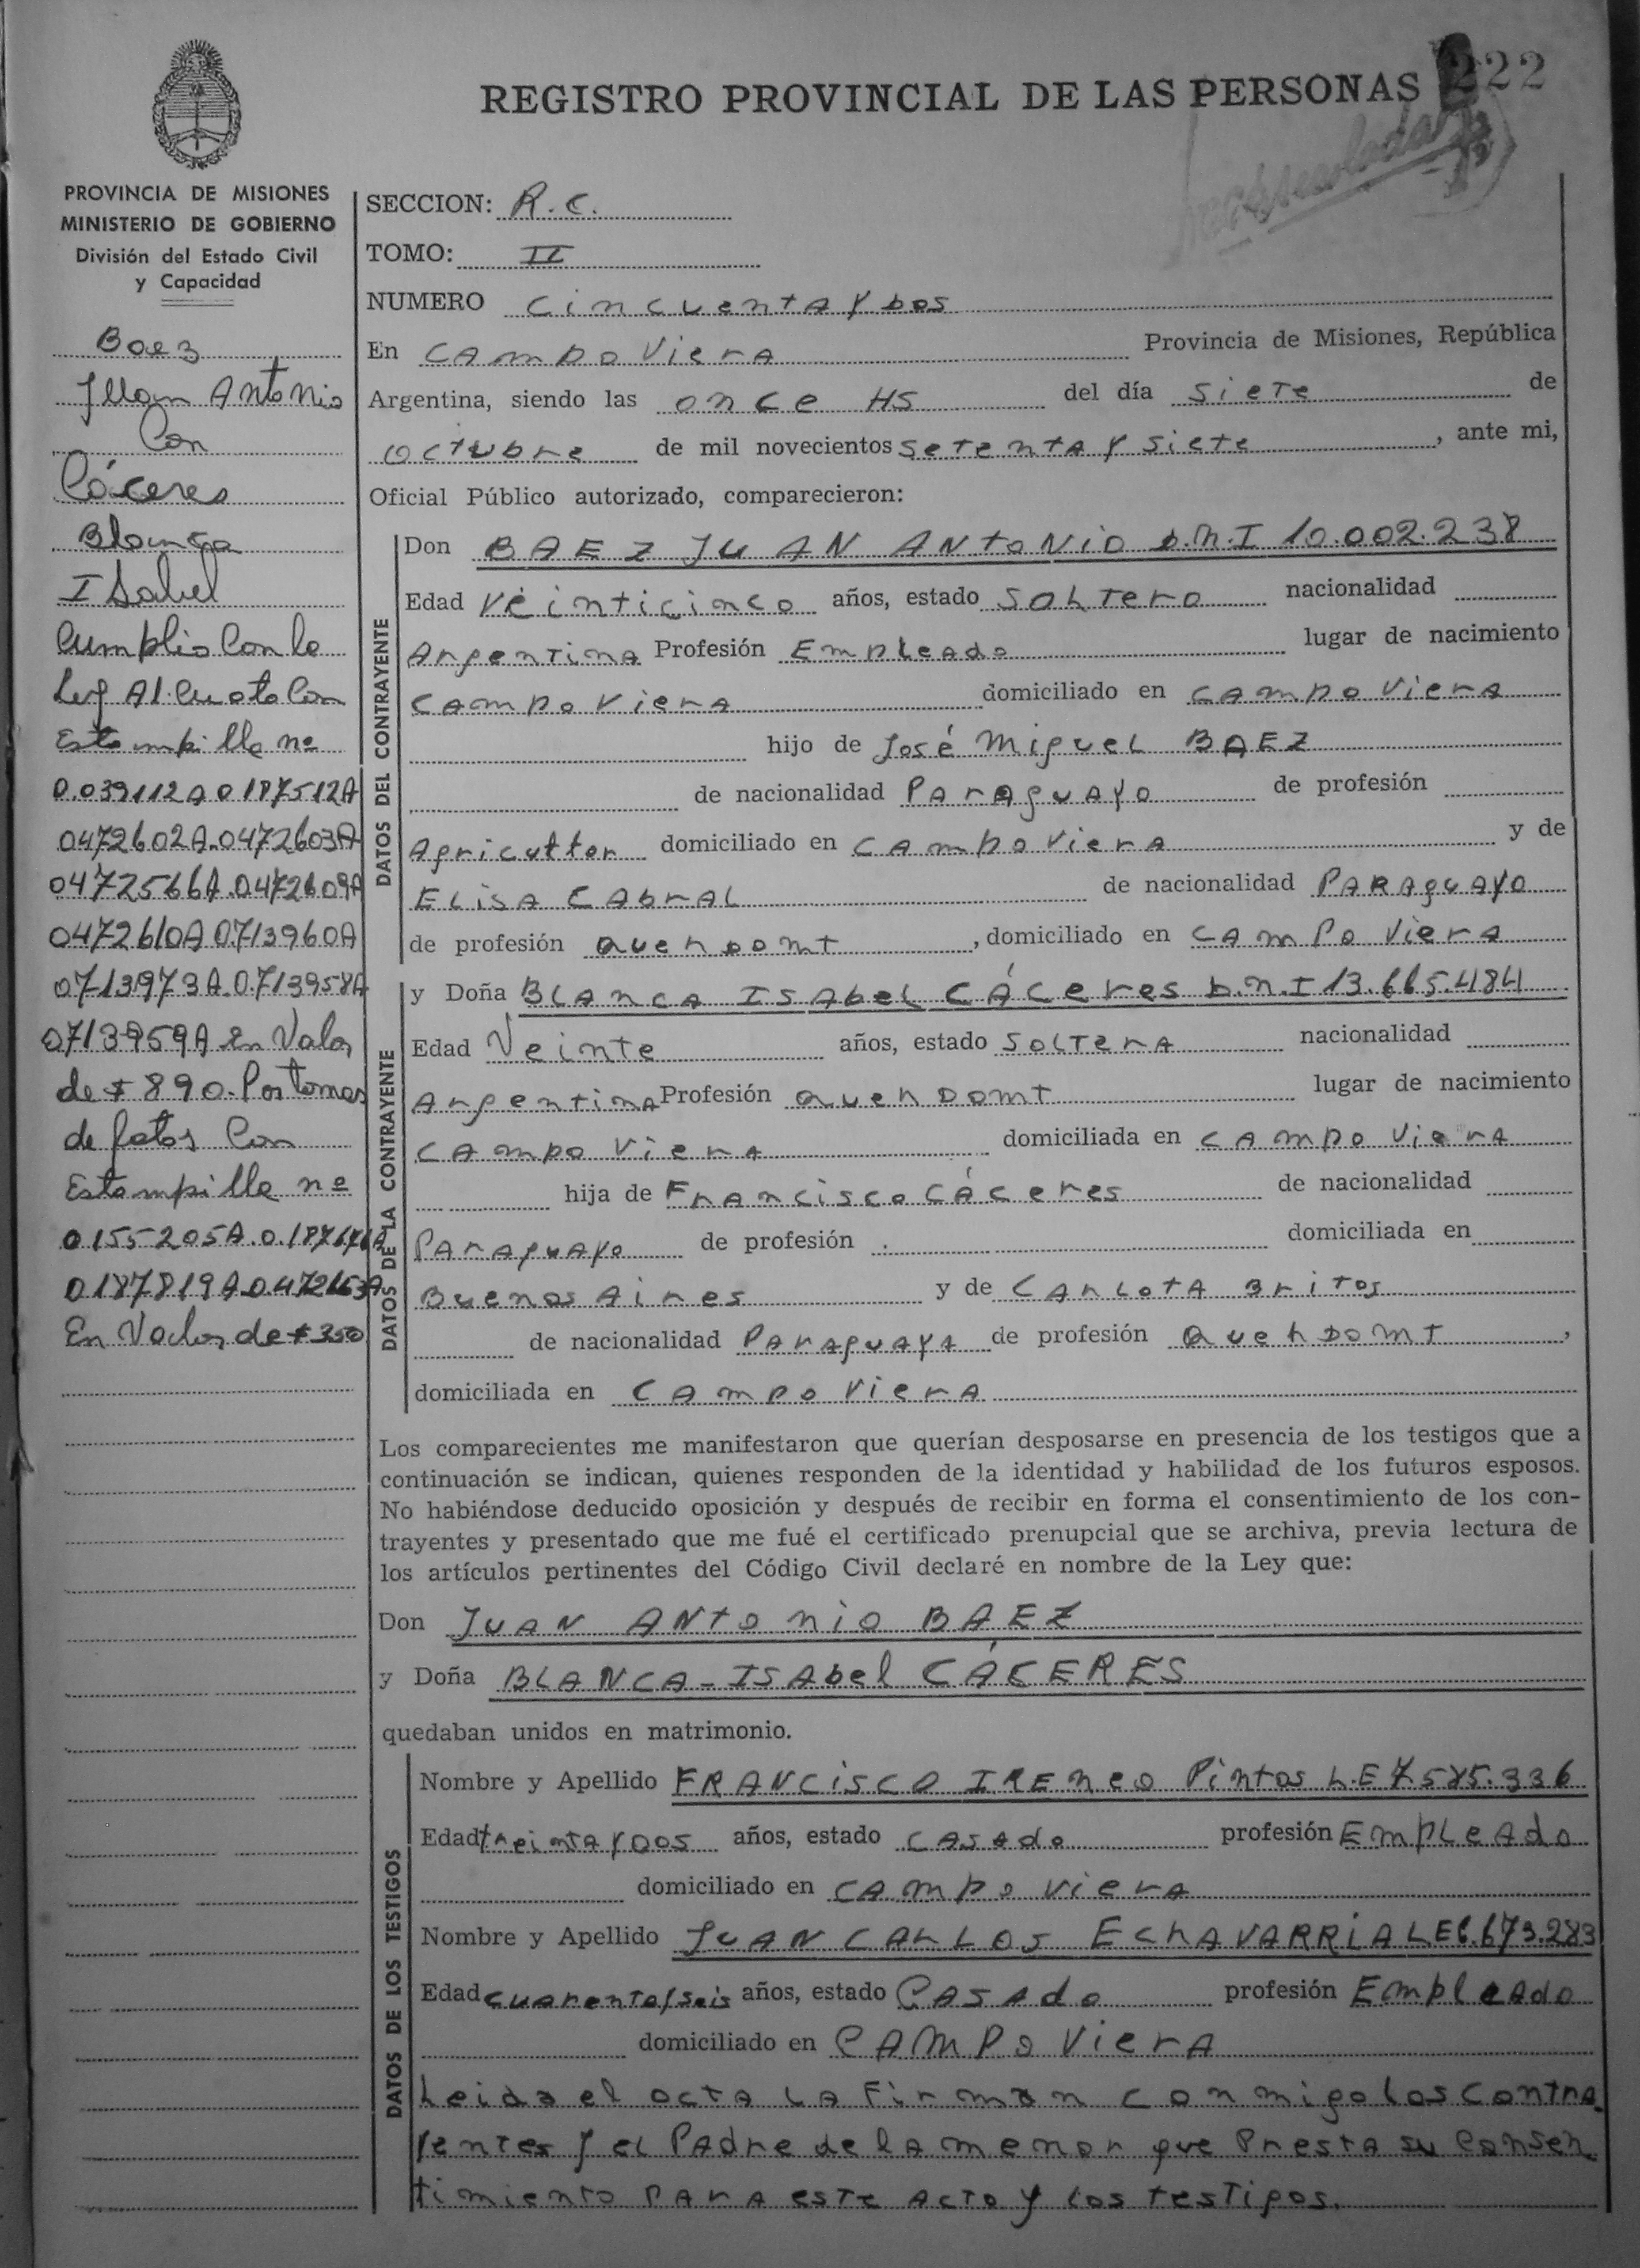 222
REGISTRO PROVINCIAL DE LAS PERSONAS
PROVINCIA DE MISIONES
MINISTERIO DE GOBIERNO
División del Estado Civil
y Capacidad
Baez
Juan Antonio
Con
Cáceres
Blanca
Isabel
Cumplio Con la
Ley Al. Cuota Con
Estampilla nº
0.039112A 0187512A
0472602A.0472603A
0472566A.0472609A
0472610A 0713960A
0713973A.0713958A
0713959A en Valor
de $ 890. Por tomas
de fotos Con
Estampilla nº
0155205A.0.187676A
0187819A 0472653A
En Valor de $ 350
SECCION: R.C.
TOMO: II
NUMERO CincuentA y Dos
En CAmpo VierA Provincia de Misiones, República
Argentina, siendo las once HS del día SieTe de
OcTubre de mil novecientos SetentA y Siete, ante mi,
Oficial Público autorizado, comparecieron:
DATOS DEL CONTRAYENTE
Don BAEZ JUAN ANtoNio D.N.I 10.002.238
Edad Veinticinco años, estado SolTero nacionalidad
ArgenTinA Profesión EmpleAdo lugar de nacimiento
CAmpo VierA domiciliado en CAmpo VierA
hijo de José Miguel BAEZ
de nacionalidad PArAguAyo de profesión
Agricultor domiciliado en CAmpo VierA y de
ELisA CAbrAL de nacionalidad PARAguAyo
de profesión Queh Domt, domiciliado en CAmPo VierA
DATOS DE LA CONTRAYENTE
y Doña BLAncA ISAbel CÁCeres D.N.I 13.665.484
Edad Veinte años, estado SolTerA nacionalidad
ArgentinA Profesión Queh Domt lugar de nacimiento
CAmpo VierA domiciliada en CAmpo VierA
hija de FrAncisco CÁCeres de nacionalidad
PArAguAyo de profesión . domiciliada en
Buenos Aires y de CArLotA Britos
de nacionalidad PArAguAyA de profesión Queh Domt,
domiciliada en CAmpo VierA
Los comparecientes me manifestaron que querían desposarse en presencia de los testigos que a
continuación se indican, quienes responden de la identidad y habilidad de los futuros esposos.
No habiéndose deducido oposición y después de recibir en forma el consentimiento de los con-
trayentes y presentado que me fué el certificado prenupcial que se archiva, previa lectura de
los artículos pertinentes del Código Civil declaré en nombre de la Ley que:
Don JUAN ANtonio BAEZ
y Doña BLANCA-ISAbel CÁCERES
quedaban unidos en matrimonio.
DATOS DE LOS TESTIGOS
Nombre y Apellido FRANCisCO IREneo Pintos L.E 7.585.336
Edad treintA y Dos años, estado CASAdo profesión EmpLeAdo
domiciliado en CAmpo VierA
Nombre y Apellido JUAN CARLos EchAVARRiA LE 6.673.283
Edad cuarenta y Seis años, estado CASAdo profesión EmpleAdo
domiciliado en CAMPo VierA
Leida el acta LA Firman conmigo los contra
yentes y el PAdre de lA menor que PrestA su Consen
timiento PArA este Acto y los tesTigos.